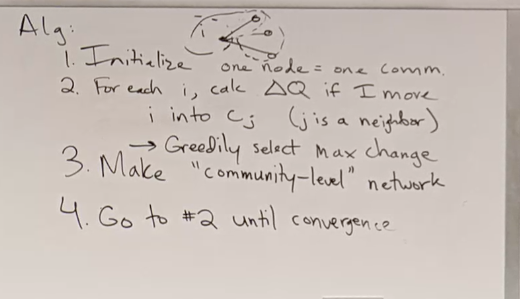 Alg:
i
1. Initialize one node = one comm.
2. For each i, calc ΔQ if I move
i into Cj (j is a neighbor)
→ Greedily select max change
3. Make "community-level" network
4. Go to #2 until convergence